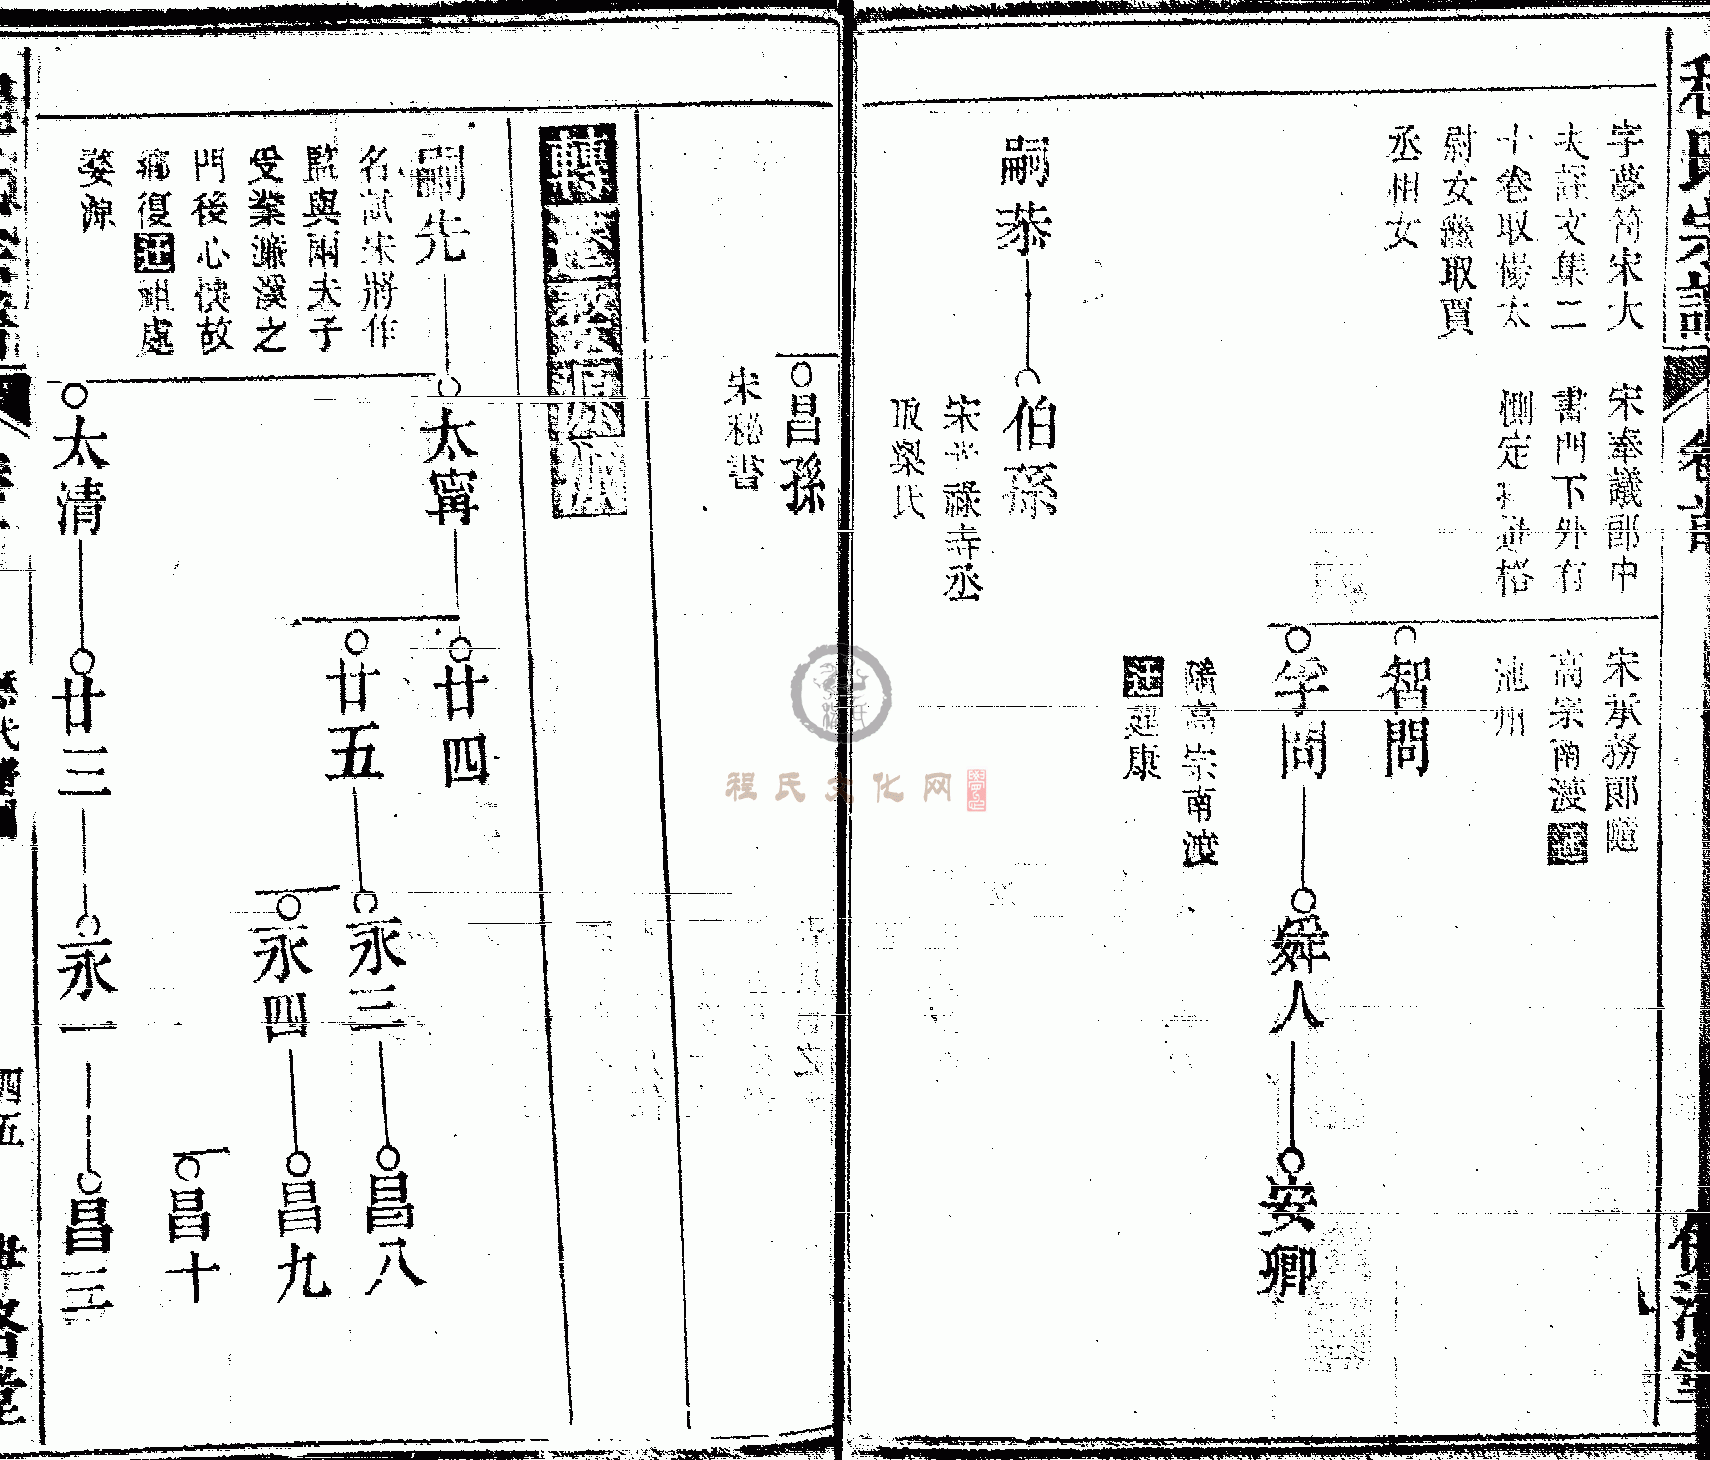 程氏宗譜
卷首
字夢符宋大
夫註文集二
十卷取懐太
尉女繼取賈
丞相女
宋奉議郎中
書門下外有
宋承務郎隨
高宗南渡遷
池州
智問
學問
隨高宗南渡
遷建康
舜人
安卿
嗣恭
伯孫
宋光祿寺丞
取梁氏
昌孫
宋秘書
轉遷婺源派
嗣先
名試宋將作
監與兩夫子
受業濂溪之
門後心懐故
鄉復遷祖處
婺源
太寧
太清
廿四
廿五
廿三
永三
永四
永一
昌八
昌九
昌十
昌三
四五
程氏文化网